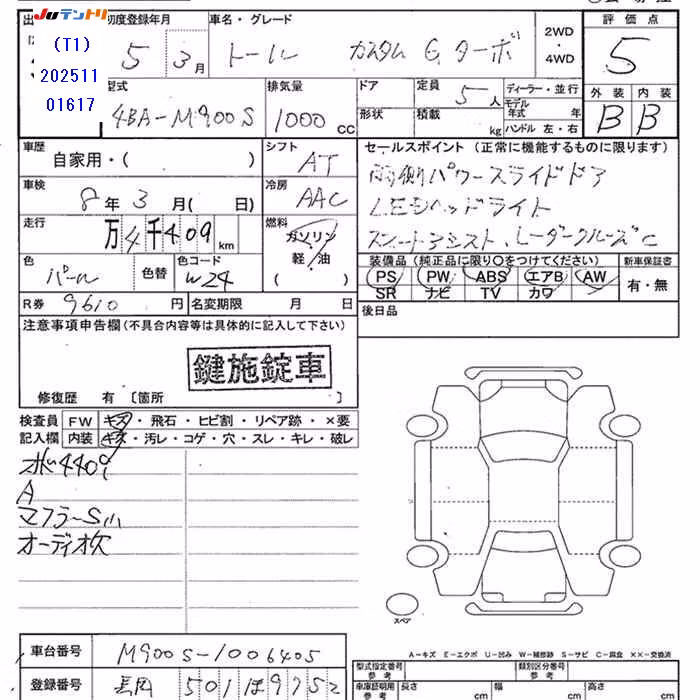 JUテントリ
(T1)
202511
01617
初度登録年月
5 3月
車名・グレード
トール カスタム G ターボ
2WD
・
4WD
評価点
5
外装 内装
B B
型式
4BA-M900S
排気量
1000 CC
ドア
形状
定員 5 人
積載 kg
ディーラー・並行
モデル年式 年
ハンドル 左・右
車歴
自家用・( )
シフト
AT
セールスポイント (正常に機能するものに限ります)
両側パワースライドドア
LEDヘッドライト
スマートアシスト、レーダークルーズC
車検
8年 3月( 日)
冷房
AAC
走行
万4千409km
燃料
ガソリン
軽/油
( )
色
パール
色替
色コード
W24
装備品 (純正品に限り○をつけてください)
PS PW ABS エアB AW
SR ナビ TV カワ
新車保証書
有・無
R券 9610 円
名変期限 月 日
後日品
注意事項申告欄 (不具合内容等は具体的に記入して下さい)
鍵施錠車
修復歴 有 〔箇所 〕
検査員
記入欄
FW キズ・飛石・ヒビ割・リペア跡・×要
内装 キズ・汚レ・コゲ・穴・スレ・キレ・破レ
A
マフラーS小
オーディオ欠
スペア
A-キズ E-エクボ U-凹み W-補修跡 S-サビ C-腐食 ××-交換済
車台番号
M900S-1006405
登録番号
長岡 501 ほ 9752
型式指定番号
参考
類別区分番号
参考
車庫証明用
参考
長さ cm
幅 cm
高さ cm